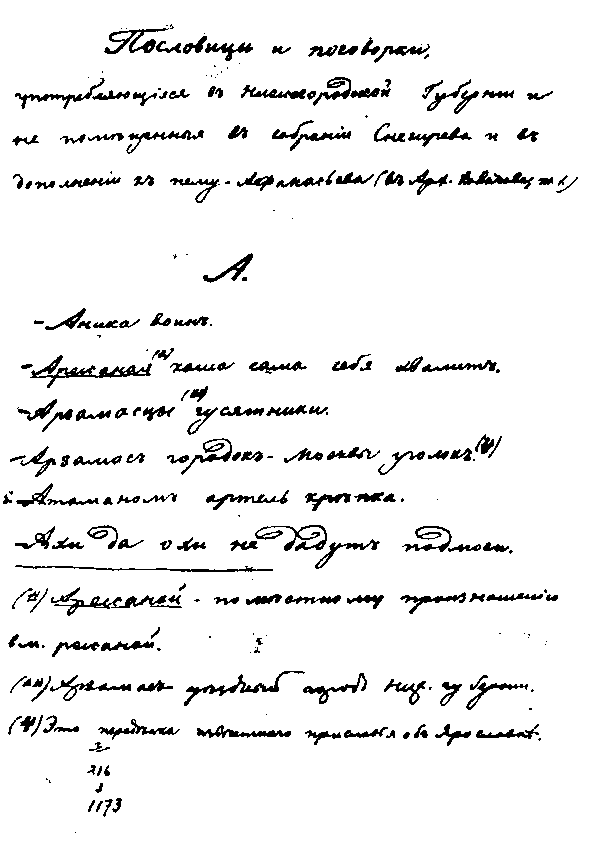 Пословицы и поговорки,
употребляющіяся въ Нижегородской Губерніи и
не помѣщенныя въ собраніи Снегирева и въ
дополненіи къ нему - Афанасьева (въ Арх.
А.
- Аника воинъ.
- Аржаная (*) каша сама себя хвалитъ.
- Арзамасцы (**) гусятники.
- Арзамасъ городокъ - Москвы уголокъ.
- Атаманомъ артель крѣпка.
- Ахи да охи не дадутъ подмоги.
(*) Аржаной - по мѣстному произношенію
вм. ржаной.
(**) Арзамасъ уѣздный городъ Ниж. губерніи.
Это передѣлка извѣстнаго присловья объ Ярославлѣ.
2
216
3
1173